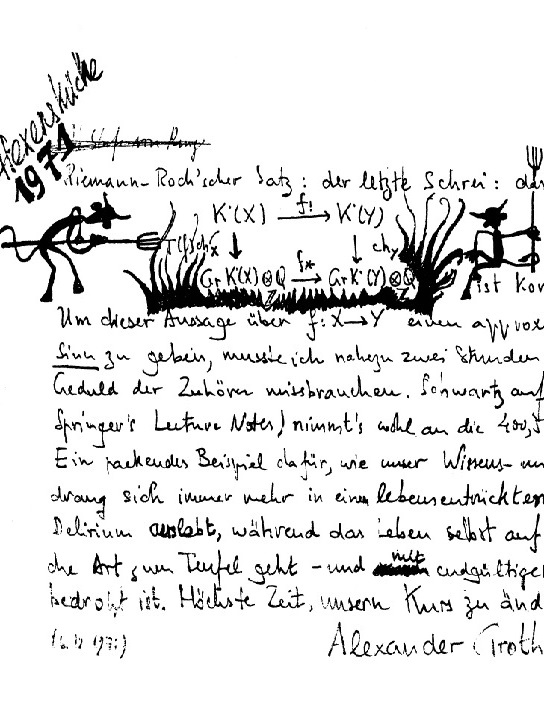 Hexenküche
1971
Riemann-Roch'scher Satz: der letzte Schrei: das
K˙(X) f! → K˙(Y)
↓ ↓ ch_Y
Gr K˙(X)⊗Q f* → Gr K˙(Y)⊗Q
Z Z
ist kom
Um dieser Aussage über f: X→Y einen approx
Sinn zu geben, musste ich nahezu zwei Stunden
Geduld der Zuhörer missbrauchen. Schwartz auf
Springer's Lecture Notes) nimmt's wohl an die 400, 5
Ein packendes Beispiel dafür, wie unser Wissens- un
drang sich immer mehr in einem lebensentrückten
Delirium auslebt, während das Leben selbst auf
che Art zum Teufel geht - und mit endgültiger
bedroht ist. Höchste Zeit, unsern Kurs zu änd
1971)
Alexander Groth